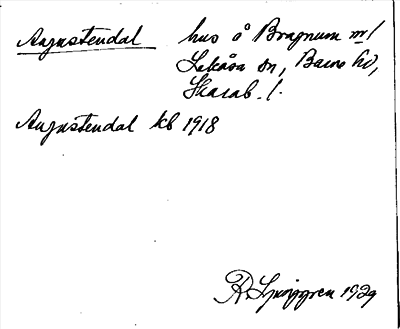 Augustendal hus å Bragnum nr 1
Lekåsa sn, Barne hd,
Skarab. l.
Augustendal kb 1918
R. Ljunggren 1929